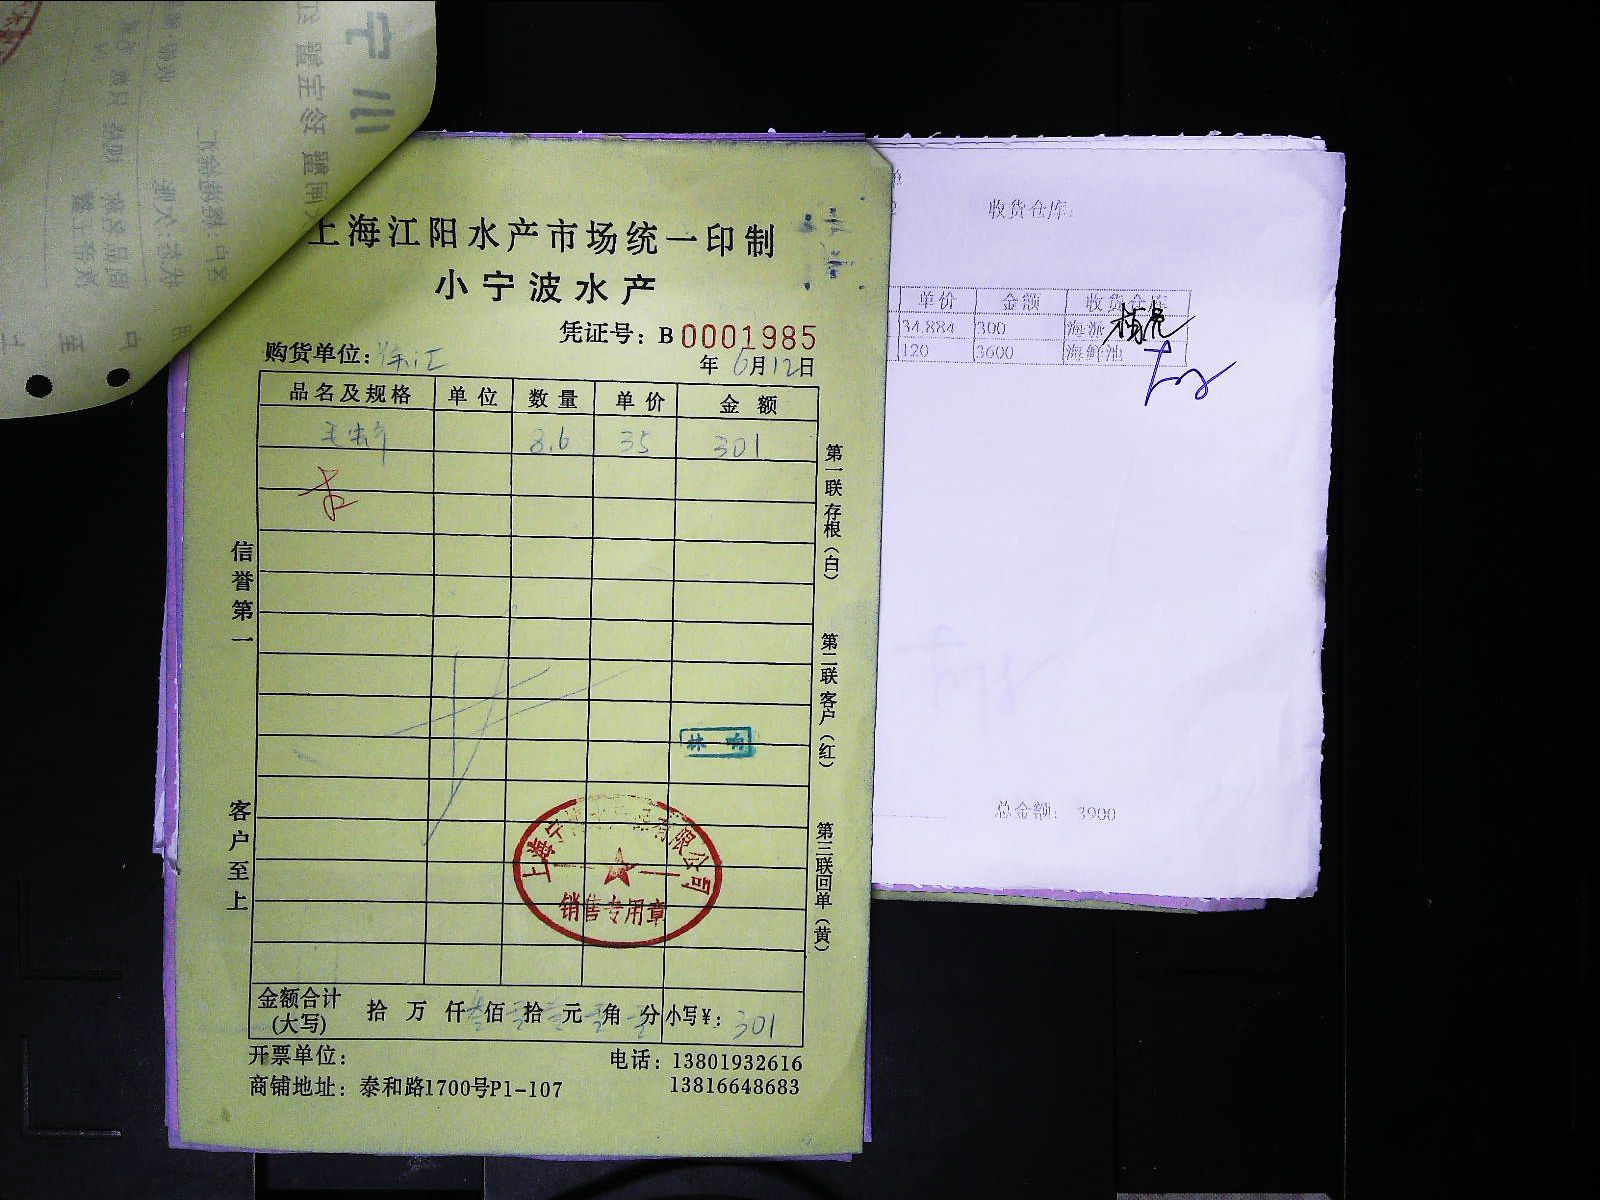 上海江阳水产市场统一印制
小宁波水产
凭证号：B 0001985
购货单位：徐汇 年 6月12日
品名及规格 单位 数量 单价 金额
8.6 35 301
信誉第一
客户至上
第一联存根（白）
第二联客户（红）
第三联回单（黄）
销售专用章
金额合计(大写) 拾 万 仟 叁佰 零拾 壹元 零角 零分 小写¥：301
开票单位： 电话：13801932616
商铺地址：泰和路1700号P1-107 13816648683
收货仓库：
单价 金额 收货仓库
34.884 300 海派
120 3600 海鲜池
总金额： 3900